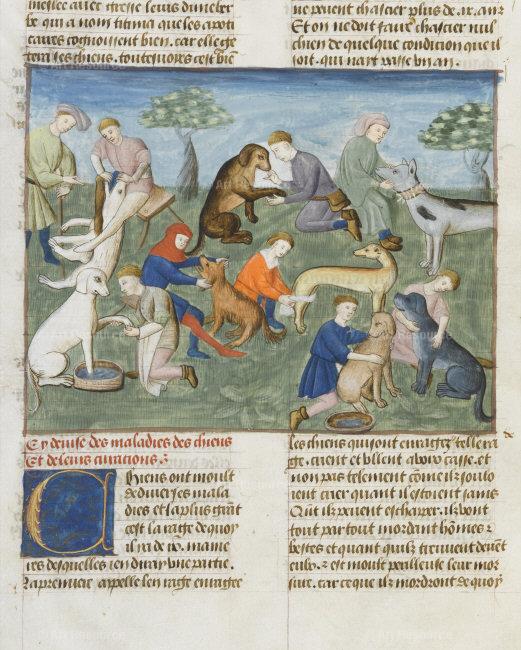 meslee avec gresse
be qui a nom titima que les apoti
caires cognoissent bien. car elle ge
tera ses chiens. toutesvoies cest bie
ne peuent chastier plus de .ix. anz
Et on ne doit faire chastier nul
chien de quelque condicion que il
soit. qui nait passe vn an.
Cy deuise des maladies des chiens
Et de leurs curacions
Chiens ont moult
de diuerses mala
dies et la plus grāt
cest la rage de quoy
il ya de ix. manie
res desquelles ien diray vne partie.
La premiere appelle len rage enragee
les chiens qui sont enragez telle ra
ge. crient et vllent a voix casse. et
non pas telement cōme ilz souloi
ent crier quant il estoient sains
Qūt ilz peuent eschaper. ilz vont
tout par tout mordant hōmes &
bestes et quant quilz treuuent deuēt
eulx. & est moult perilleuse leur mor
sure. car ce que ilz mordront de quoy
Art Resource